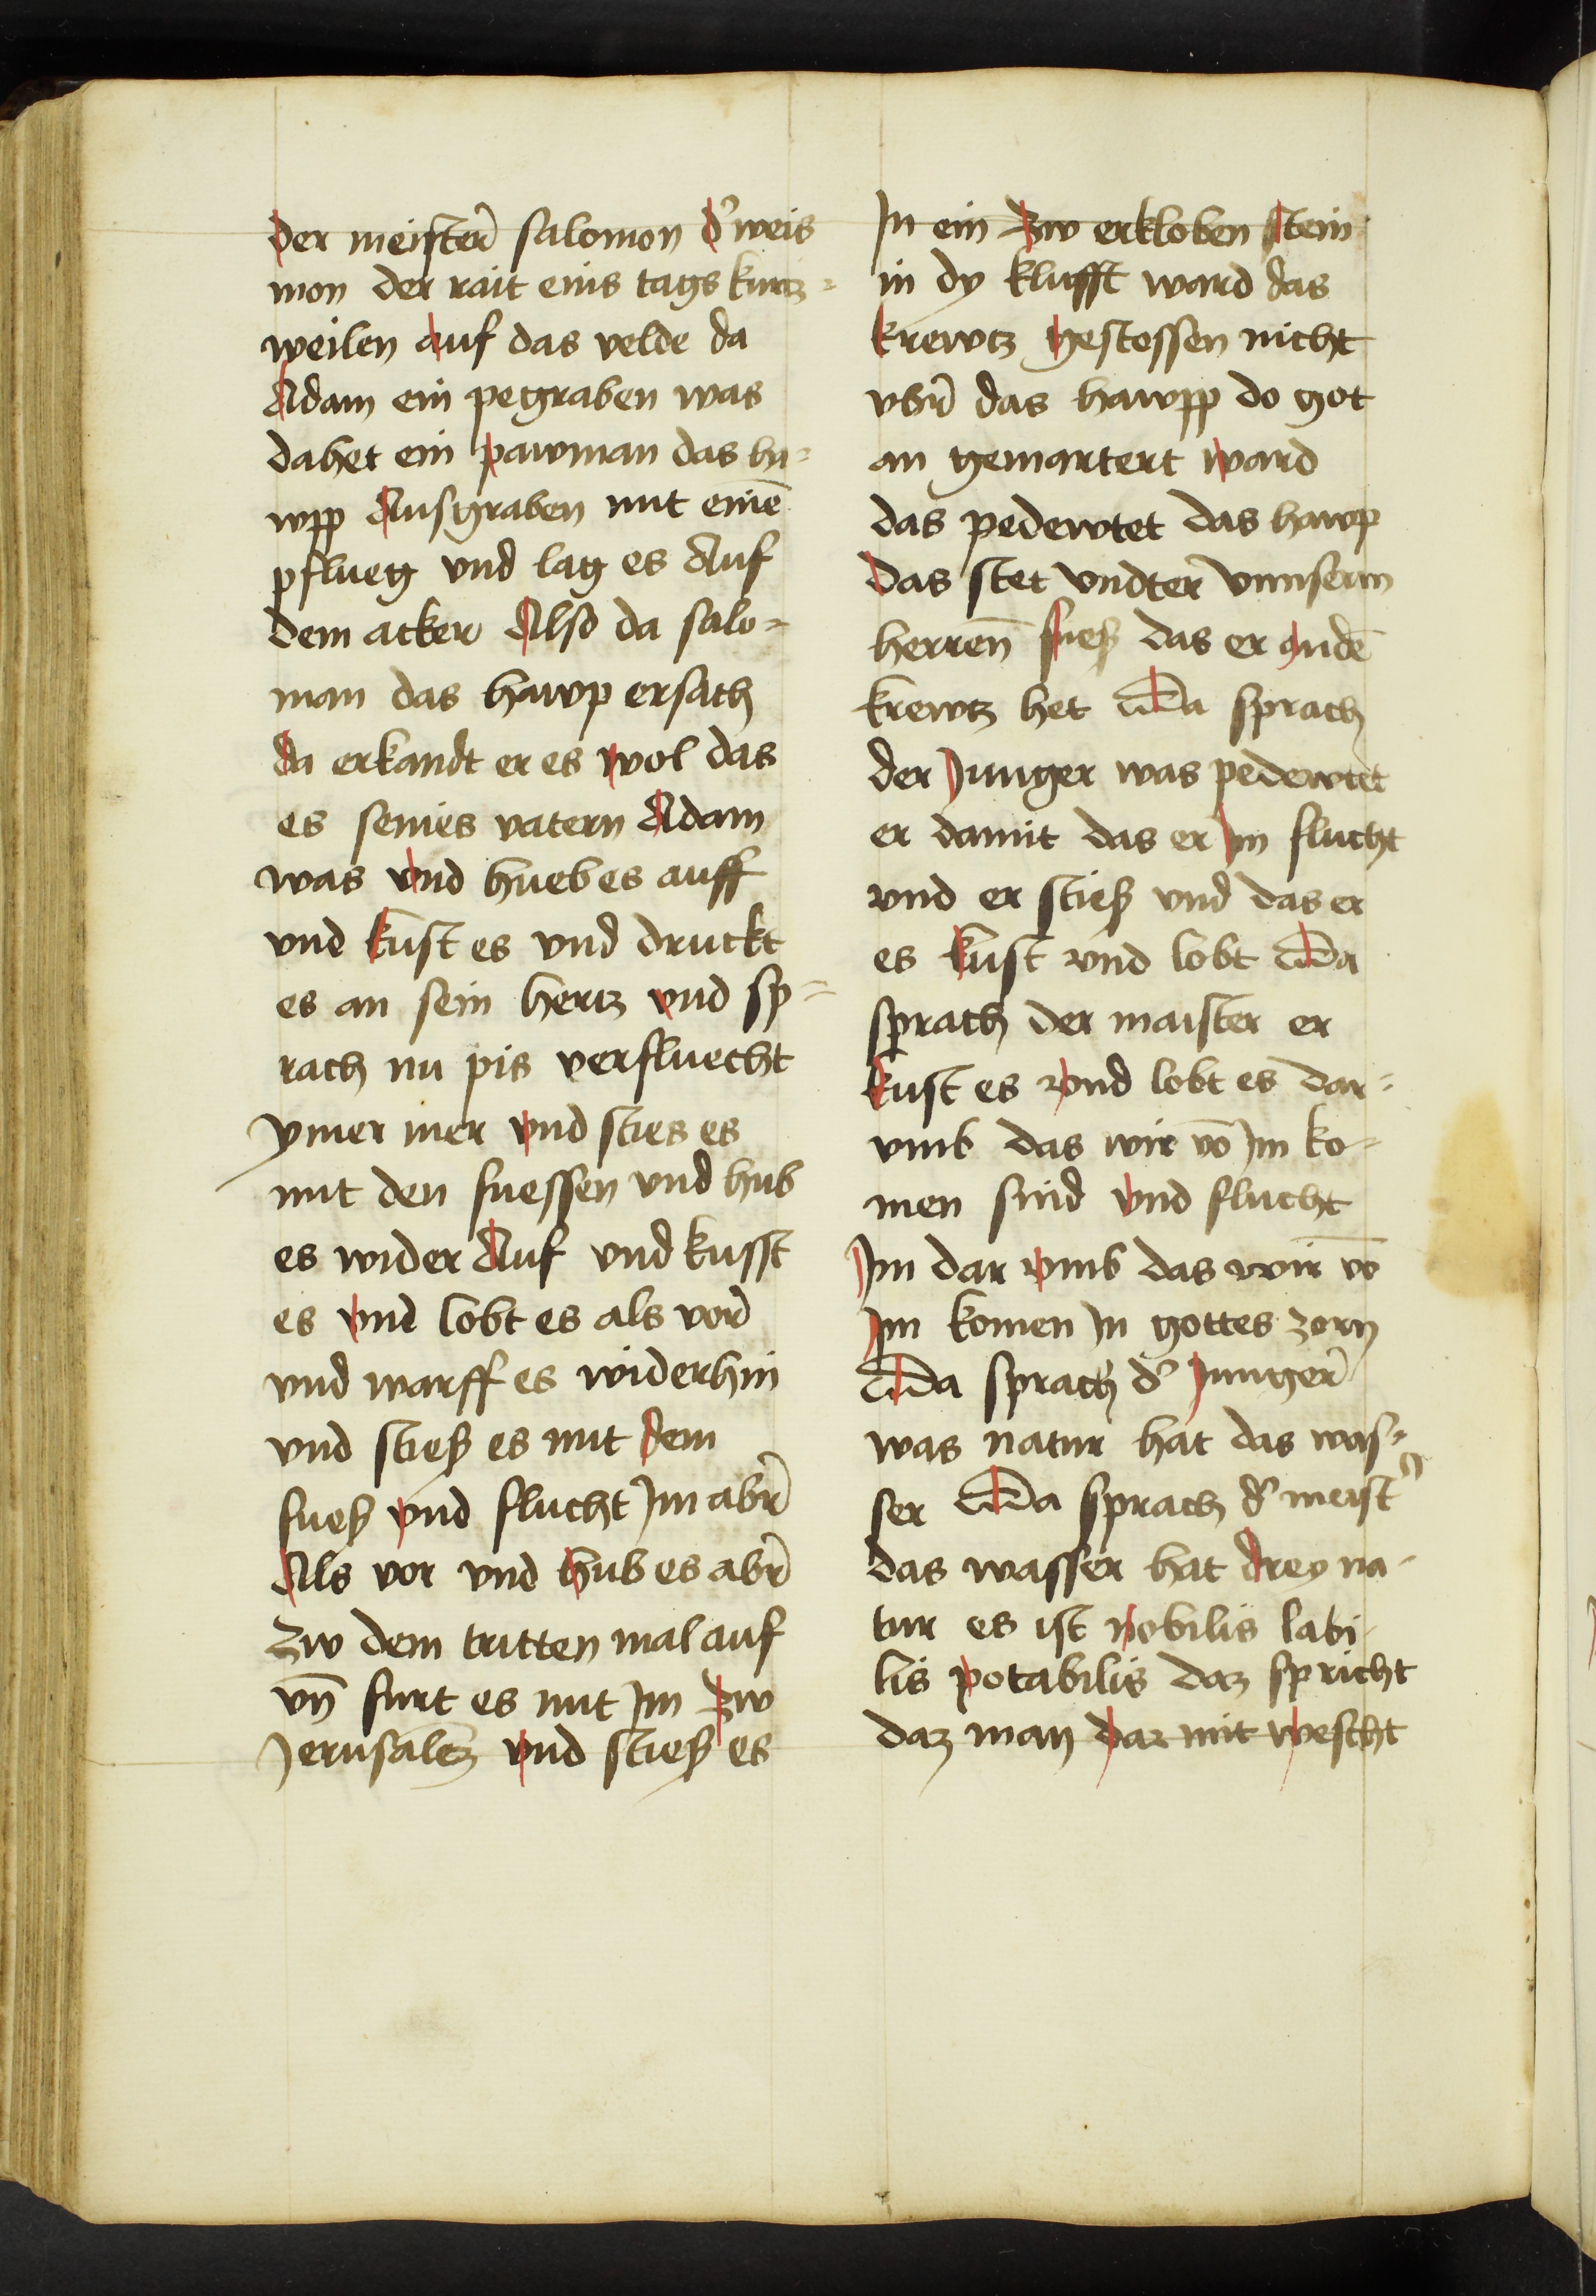 der meister salomon d' weis
mon der rait eins tags kurtz=
weilen auf das velde da
Adam ein pegraben was
da het ein pawman das ha=
wpp Ausgraben mit einē
pflueg vnd lag es Auf
dem acker Also da salo=
man das hawp ersach
da erkandt er es wol das
es seines vatern Adam
was vnd hueb es auff
vnd kust es vnd druckt
es an sein hertz vnd sp=
rach nu pis verfluecht
ymer mer vnd sties es
mit den fuessen vnd hub
es wider Auf vnd kusst
es vnd lobt es als vor
vnd warff es wider hin
vnd stieß es mit dem
fueß vnd flucht Im abr̄
Als vor vnd hub es abr̄
zw dem tritten mal auf
vn̄ furt es mit Im zw
Jerusalem vnd stieß es
In ein zw erkloben stein
in dy klufft ward das
krewtz gestossen nicht
vbr̄ das hawpp do got
an gemartert ward
das pedewtet das hawp
das stet vndter vnnserm
herren̄ fueß das er an dē
krewtz het Da sprach
der Junger was pedewtet
er damit das er Im flucht
vnd er stieß vnd das er
es kust vnd lobt Da
sprach der maister er
kust es vnd lobt es dar=
vmb das wir vō Im ko=
men sind vnd flucht
Im dar vmb das wir vō
Im komen In gottes zorn
Da sprach d' Junger
was natur hat das was=
ser Da sprach d' meist'
das wasser hat drey na-
tur es ist nobilis labi-
lis potabilis daz spricht
daz man dar mit wescht